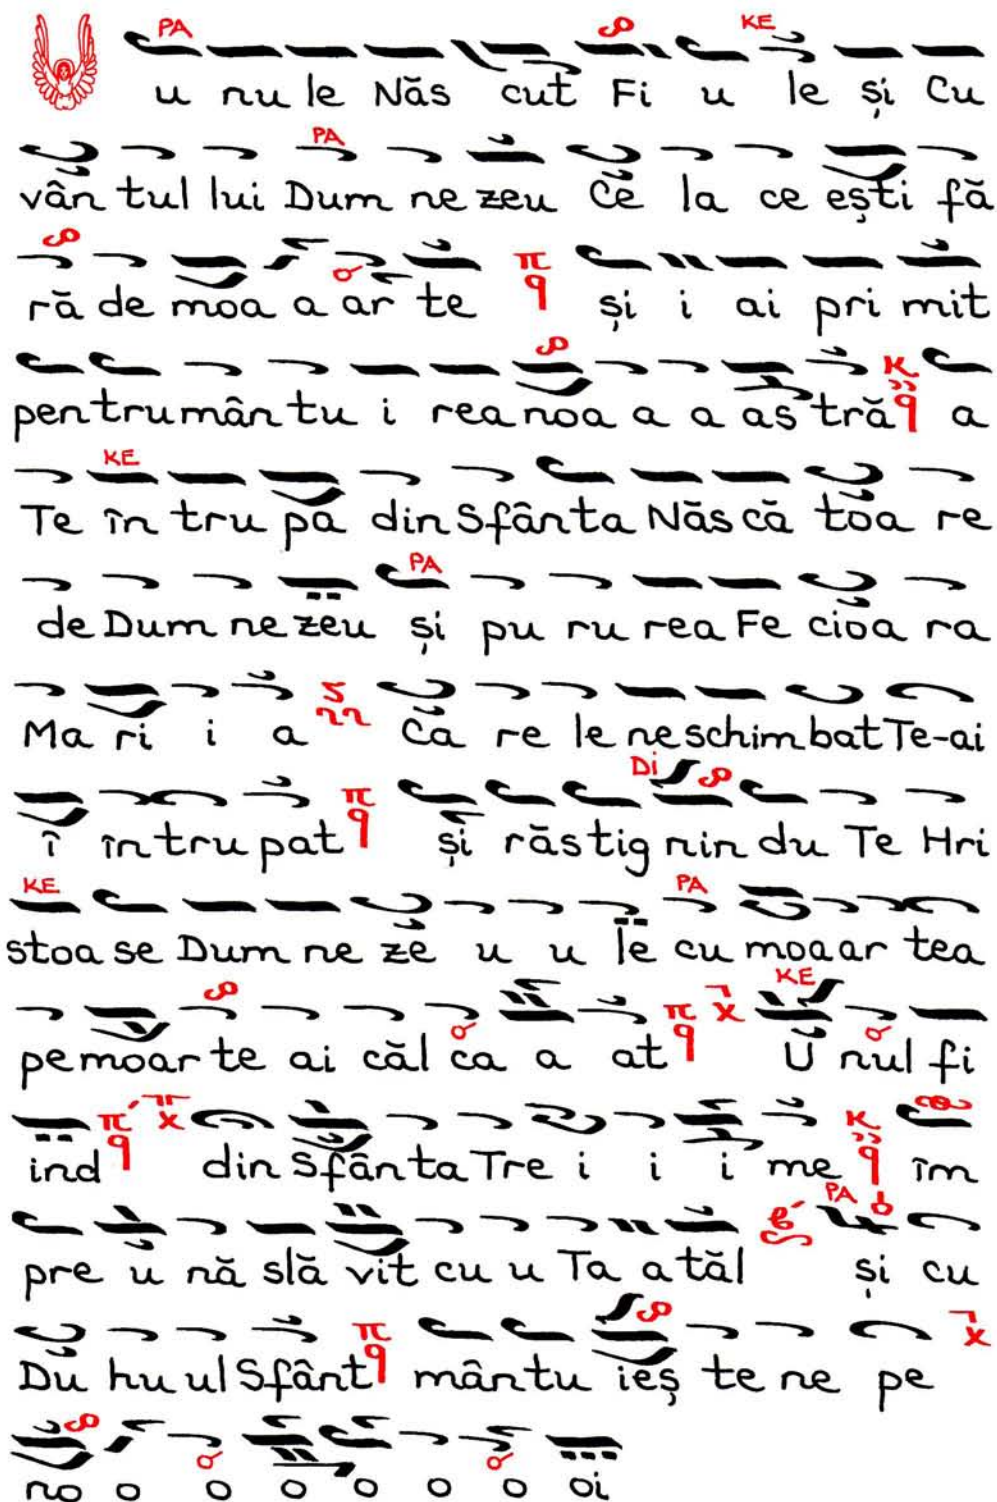 PA KE
u nu le Năs cut Fi u le și Cu
PA
vân tul lui Dum ne zeu Ce la ce ești fă
ră de moa a ar te π q și i ai pri mit
pen tru mân tu i rea noa a a as tră K q a
KE
Te în tru pa din Sfânta Năs că toa re
PA
de Dum ne zeu și pu ru rea Fe cioa ra
Ma ri i a Ca re le ne schim bat Te-ai
Di
î în tru pat π q și răs tig nin du Te Hri
KE PA
stoa se Dum ne ze u u le cu moa ar tea
KE
pe moar te ai căl ca a at π q χ U nul fi
ind π q χ din Sfân ta Tre i i i me K q îm
PA
pre u nă slă vit cu u Ta a tăl și cu
Du hu ul Sfânt π q mân tu ieș te ne pe χ
no o o o o o o oi